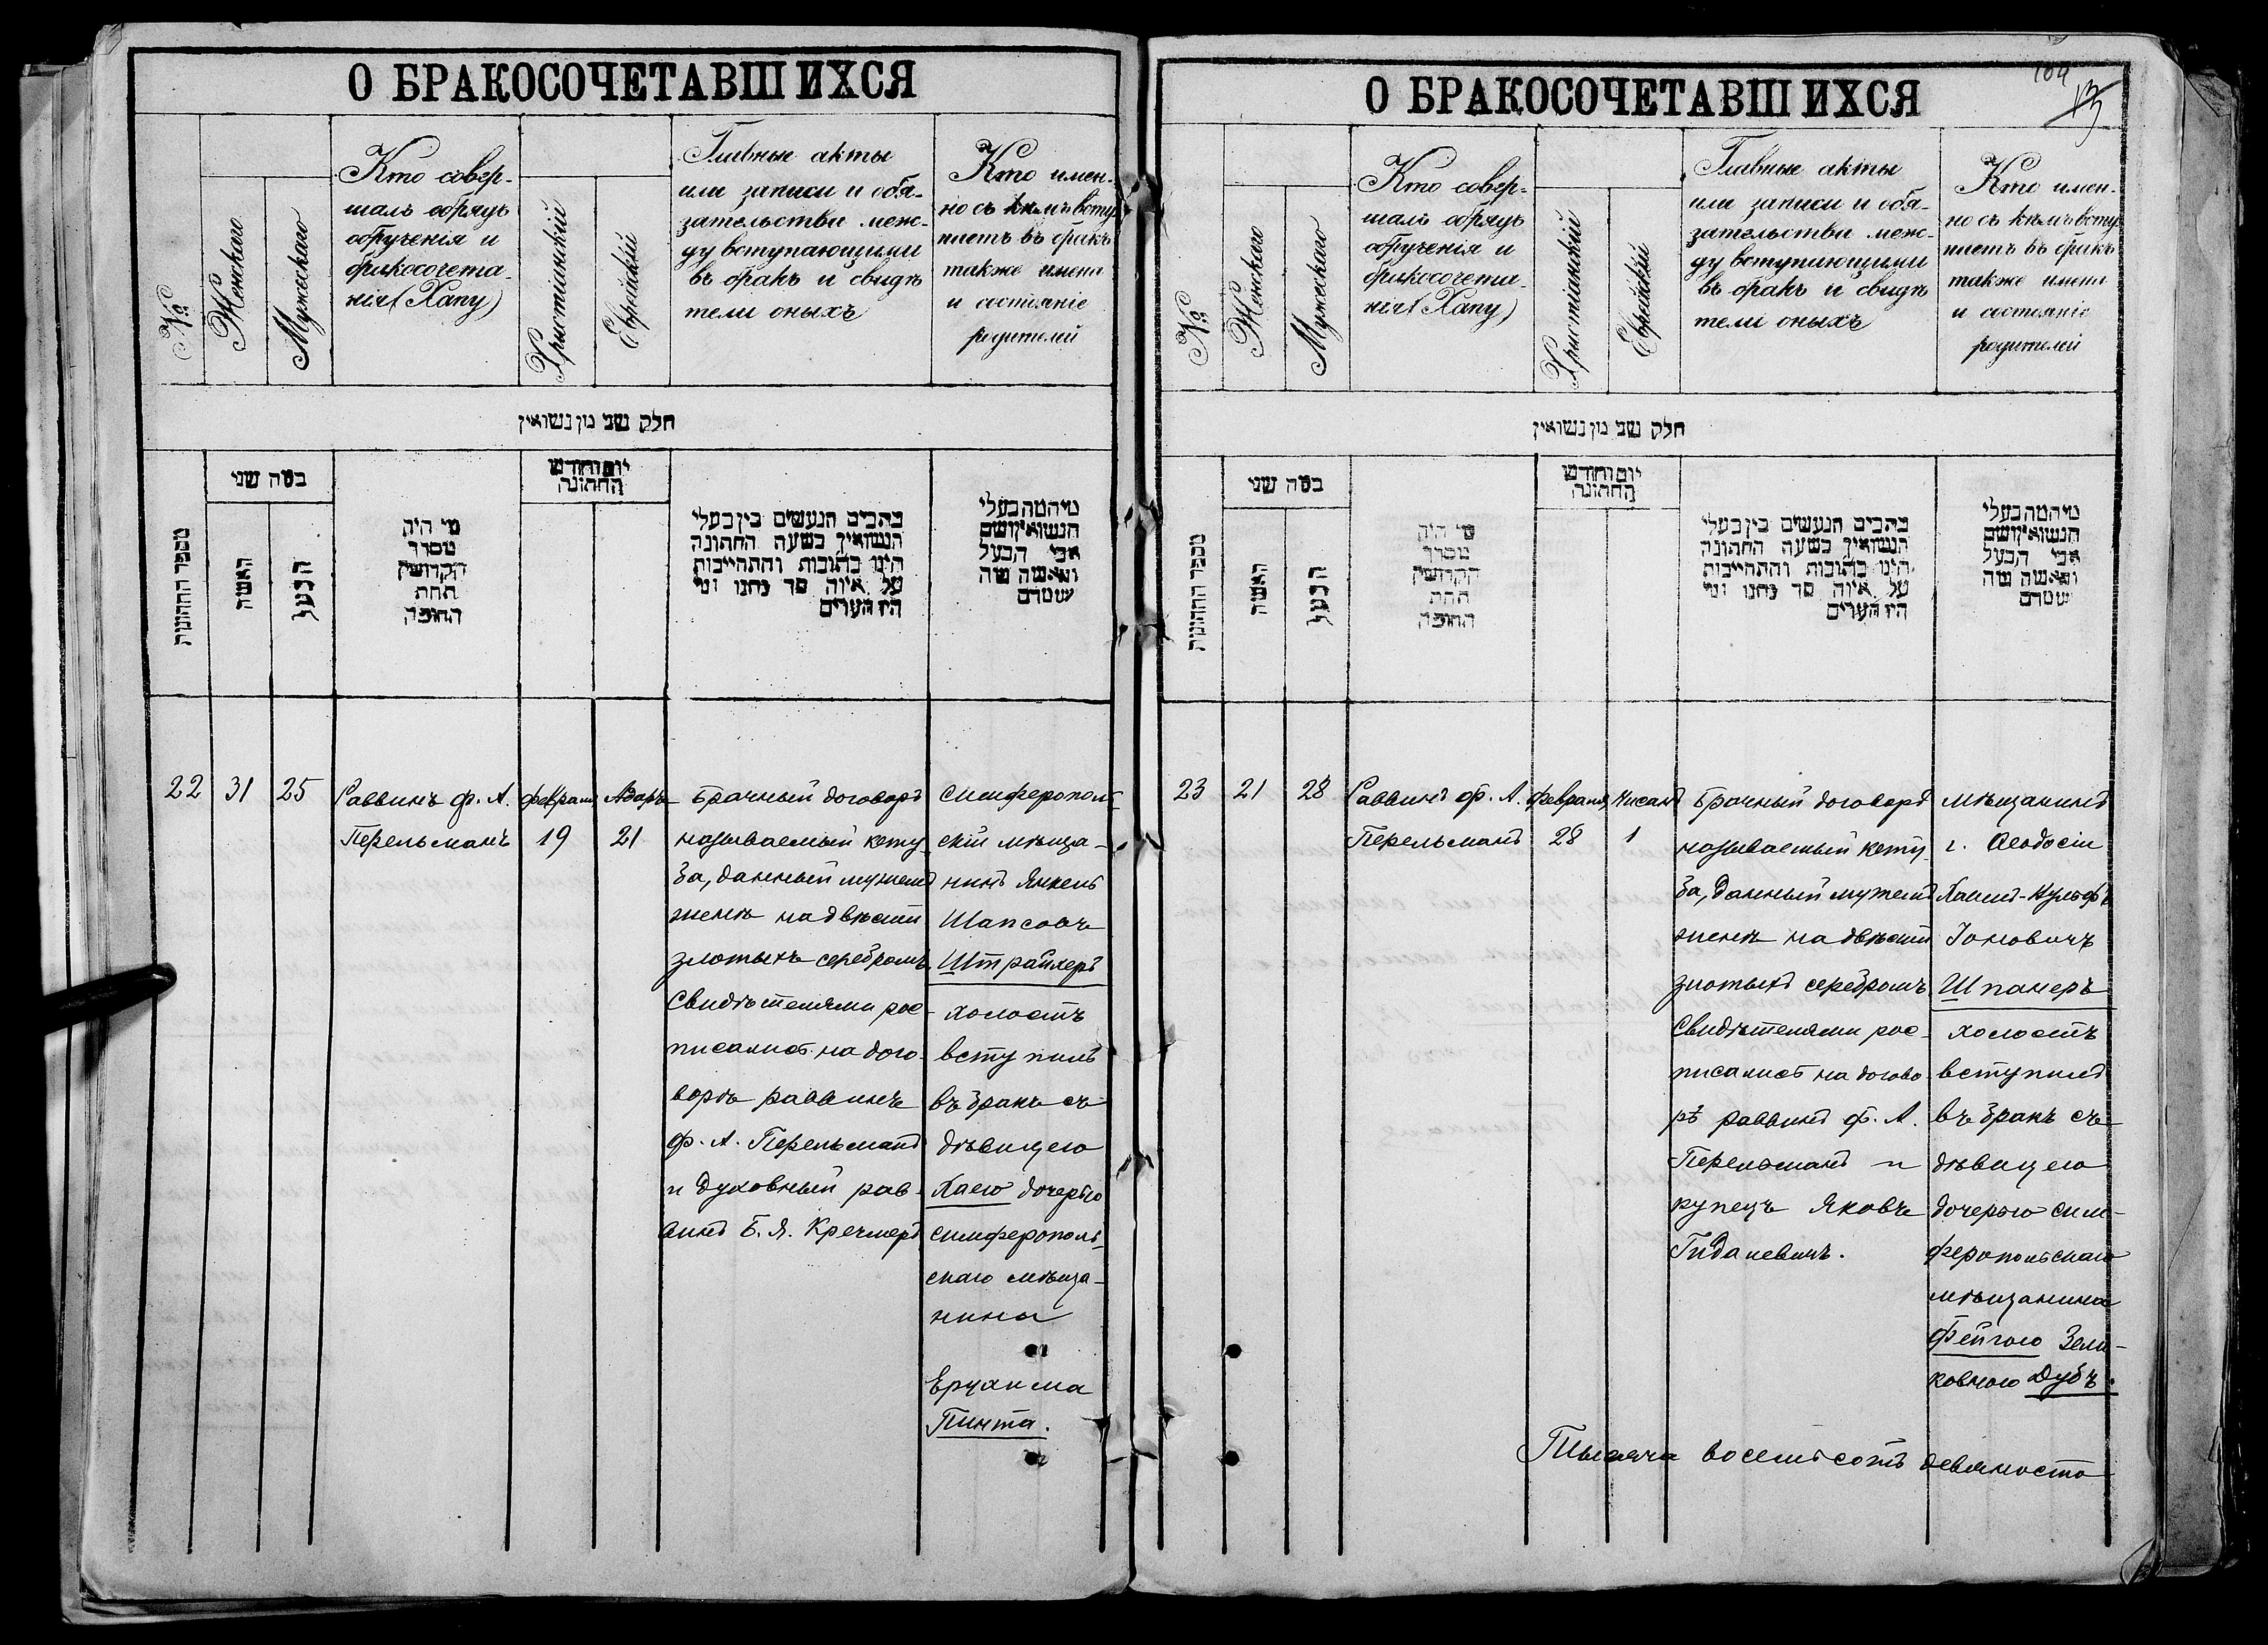 О БРАКОСОЧЕТАВШИХСЯ
№
Женскаго
Мужескаго
Кто совер-
шалъ обрядъ
обрученія и
бракосочета-
нія (Хапу)
Христіанскій
Еврейскій
Главные акты
или записи и обя-
зательства меж-
ду вступающими
въ бракъ и свидѣ
тели оныхъ
Кто имен-
но съ кѣмъ всту
паетъ въ бракъ
также имена
и состояніе
родителей
חלק שני מן נשואין
מספר החתונות
במה שני
האשה
הבעל
מי היה
מסדר
הקדושין
תחת
החופה
יום וחודש
החתונה
כתבים הנעשים בין בעלי
הנשואין בשעה החתונה
היינו כתובות והתחייבות
על איזה סך נתנו ומי
הם הערים
מיהמה בעלי
הנשואין ושם
אבי הבעל
והאשה ומה
שמרם
22
31
25
Раввинъ ф. А.
Перельманъ
Февраля
19
Адаръ
21
Брачный договоръ
называемый кету-
ба, данный мужемъ
женѣ на двѣсти
злотыхъ серебромъ.
Свидѣтелями рос-
писались на дого-
ворѣ раввинъ
ф. А. Перельманъ
и духовный рав-
винъ Б. Я. Кречмеръ
Симферополь-
скій мѣща-
нинъ Янкель
Шапсовъ
Штрайхеръ
холостъ
вступилъ
въ бракъ съ
дѣвицею
Хаею дочерью
симферополь-
скаго мѣща-
нина
Ерухима
Пинта.
О БРАКОСОЧЕТАВШИХСЯ
104
13
№
Женскаго
Мужескаго
Кто совер-
шалъ обрядъ
обрученія и
бракосочета-
нія (Хапу)
Христіанскій
Еврейскій
Главные акты
или записи и обя-
зательства меж-
ду вступающими
въ бракъ и свидѣ
тели оныхъ
Кто имен-
но съ кѣмъ всту
паетъ въ бракъ
также имена
и состояніе
родителей
חלק שני מן נשואין
מספר החתונות
במה שני
האשה
הבעל
מי היה
מסדר
הקדושין
תחת
החופה
יום וחודש
החתונה
כתבים הנעשים בין בעלי
הנשואין בשעה החתונה
היינו כתובות והתחייבות
על איזה סך נתנו ומי
הם הערים
מיהמה בעלי
הנשואין ושם
אבי הבעל
והאשה ומה
שמרם
23
21
28
Раввинъ ф. А.
Перельманъ
Февраля
28
Нисанъ
1
Брачный договоръ
называемый кету-
ба, данный мужемъ
женѣ на двѣсти
злотыхъ серебромъ.
Свидѣтелями рос-
писались на догово-
рѣ раввинъ ф. А.
Перельманъ и
купецъ Яковъ
Гидалевичъ.
мѣщанинъ
г. Ѳеодосіи
Хаимъ-Вульфъ
Іоновичъ
Шпанеръ
холостъ
вступилъ
въ бракъ съ
дѣвицею
дочерью сим-
феропольскаго
мѣщанина
Фейгою Зели-
ковною Дубъ.
Тысяча восемьсотъ девяносто